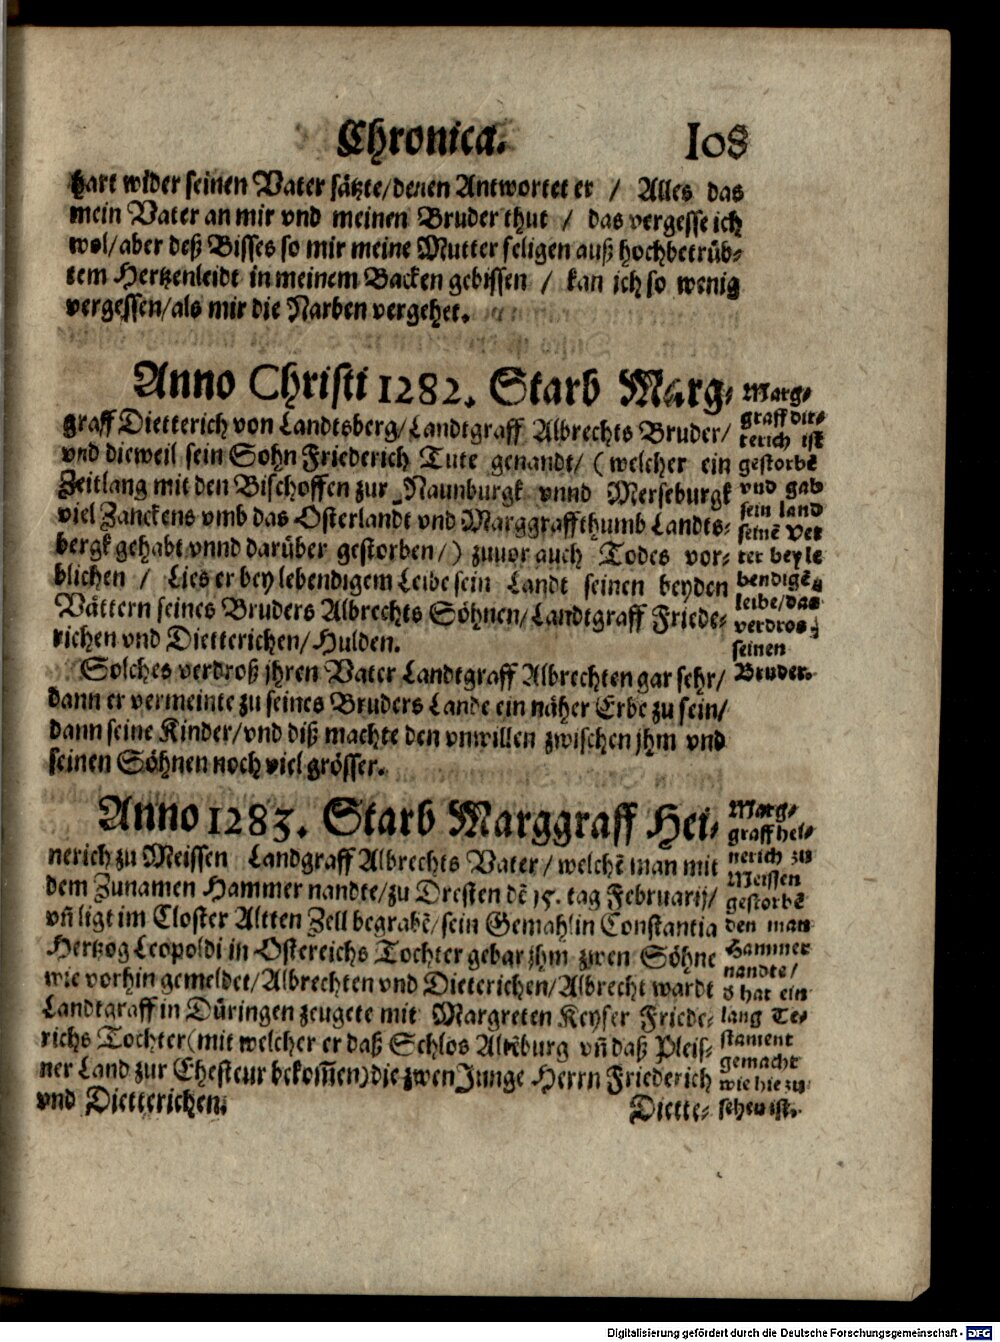 Chronica. 108
hart wider seinen Vater sätzte/denen Antwortet er / Alles das
mein Vater an mir vnd meinen Bruder thut / das vergesse ich
wol/aber deß Bisses so mir meine Mutter seligen auß hochbetrüb-
tem Hertzenleidt in meinem Backen gebissen / kan ich so wenig
vergessen/als mir die Narben vergehet.
Anno Christi 1282. Starb Marg-
graff Dietterich von Landtsberg/Landtgraff Albrechts Bruder/
vnd dieweil sein Sohn Friederich Tute genandt/ (welcher ein
Zeitlang mit den Bischoffen zur Naunburgk vnnd Merseburgk
viel Zanckens vmb das Osterlandt vnd Marggraffthumb Landts-
bergk gehabt vnnd darüber gestorben/) zuuor auch Todes vor-
blichen / Lies er bey lebendigem Leibe sein Landt seinen beyden
Vättern seines Bruders Albrechts Söhnen/Landtgraff Friede-
richen vnd Dietterichen/Hulden.
Marg-
graff Die-
terich ist
gestorbē
vnd gab
sein land
seinē Vet
ter bey le
bendigē
leibe/das
verdros
seinen
Bruder.
Solches verdroß jhren Vater Landtgraff Albrechten gar sehr/
dann er vermeinte zu seines Bruders Lande ein näher Erbe zu sein/
dann seine Kinder/vnd diß machte den vnwillen zwischen jhm vnd
seinen Söhnen noch viel grösser.
Anno 1283. Starb Marggraff Hei-
nerich zu Meissen Landgraff Albrechts Vater/welchē man mit
dem Zunamen Hammer nandte/zu Dresten dē 15. tag Februarij/
vñ ligt im Closter Altten Zell begrabē/sein Gemahlin Constantia
Hertzog Leopoldi in Ostereichs Tochter gebar jhm zwen Söhne
wie vorhin gemeldet/Albrechten vnd Dieterichen/Albrecht wardt
Landtgraff in Düringen zeugete mit Margreten Keyser Friede-
richs Tochter(mit welcher er daß Schlos Altēburg vñ daß Pleis-
ner Land zur Ehesteur bekom̃en)die zwen Junge Herrn Friederich
vnd Dietterichen.
Marg-
graff hei-
nerich zu
Meissen
gestorbē
den man
Hammer
nandte/
s hat ein
lang Te-
stament
gemacht
wie hie zu
sehen ist.
Diette-
Digitalisierung gefördert durch die Deutsche Forschungsgemeinschaft - DFG